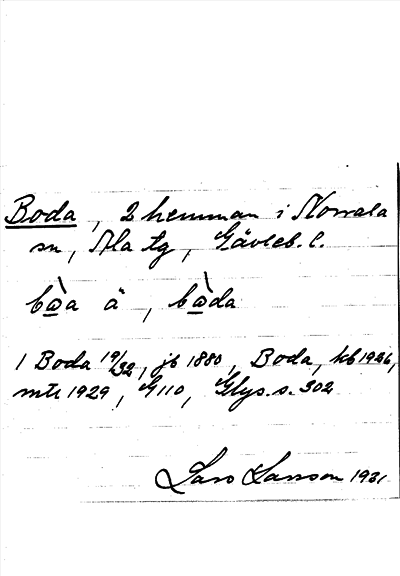 Boda, 2 hemman i Norrala
sn, Ala tg, Gävleb. l.
bò̲a ä, bò̲da
1 Boda 19/32, jb 1880, Boda, kb 1926,
mtl 1929, G110, Glys. s. 302
Lars Larsson 1931